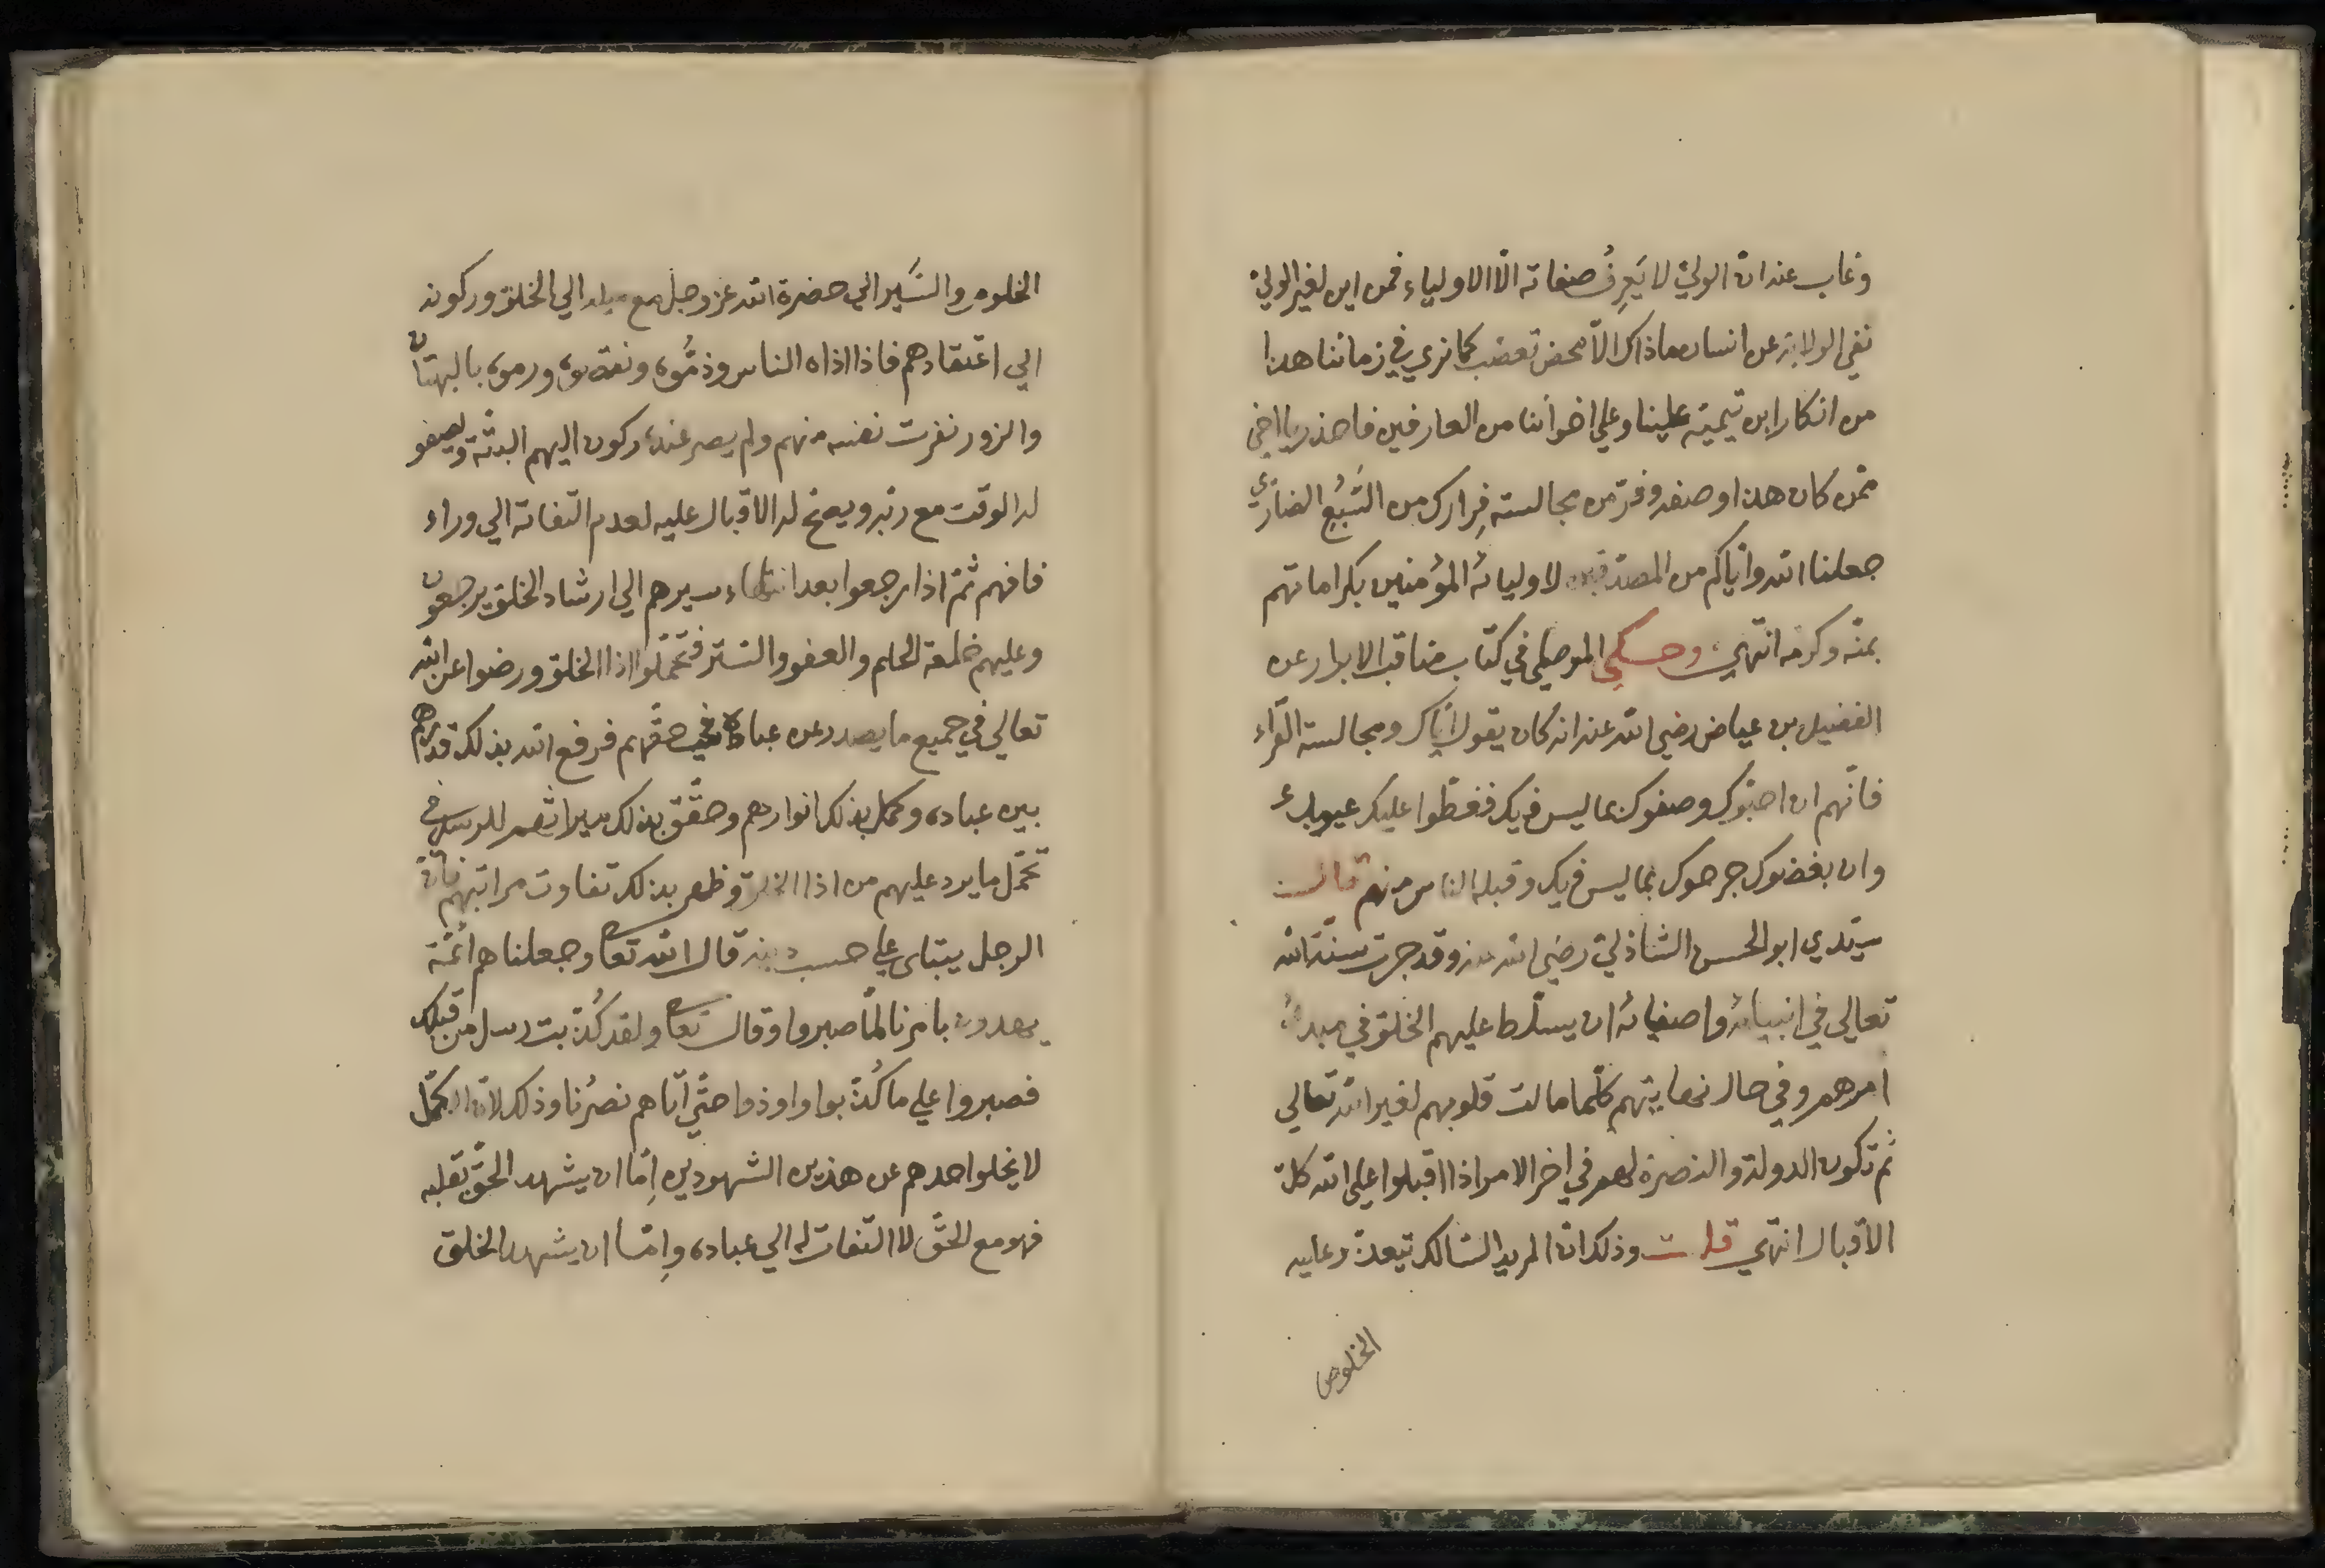 وغاب عنه ان الوليّ لا يَعرِفُ صفاته الّا الاولياء فمن اين لغير الوليّ
نفي الولاية عن انسان ماذاك الّا محض تعصّب كما نري في زماننا هذا
من انكار ابن تيميّة علينا وعلي اخواننا من العارفين فاحذر يا اخي
ممّن كان هذا وصفه وفرّ من مجالسته فِرارك من السَّبُعِ الضاري
جعلنا الله وايّاكم من المصدّقين لاوليائه المؤمنين بكراماتهم
بمنّه وكرمه انتهي وحكي الموصلي في كتاب مناقب الابرار عن
الفضيل بن عياض رضي الله عنه انه كان يقول ايّاك ومجالسة القرّاء
فانّهم ان احبّوك وصفوك بما ليس فيك فغطّوا عليك عيوبك
وان بغضوك جرحوك بما ليس فيك وقبله الناس منهم قال
سيّدي ابو الحسن الشاذليّ رضي الله عنه وقد جرت سنّة الله
تعالي في انبيائه واصفيائه ان يسلّط عليهم الخلق في مبدء
امرهم وفي حال نهايتهم كلّما مالت قلوبهم لغير الله تعالي
ثم تكون الدولة والنصرة لهم في اخر الامر اذا اقبلوا علي الله كلّ
الاقبال انتهي قلت وذلك انّ المريد السالك يتعذّر عليه
الخلوص
الخلوص والسَّير الي حضرة الله عزوجل مع ميله الي الخلق وركونه
الي اعتقادهم فاذا اذاه الناس وذمُّوه ونقصوه ورموه بالبهتان
والزور نفرت نفسه منهم ولم يصر عنده ركون اليهم البتّة ويصفو
له الوقت مع ربّه ويصحّ له الاقبال عليه لعدم التفاته الي وراء
فافهم ثمّ اذا رجعوا بعد انتهاء سيرهم الي ارشاد الخلق يرجعون
وعليهم خلعة الحلم والعفو والستر فتحمّلوا اذا الخلق ورضوا عن الله
تعالي في جميع ما يصدر عن عباده في حقّهم فرفع الله بذلك قدرهم
بين عباده وكمّل بذلك انوارهم وحقّق بذلك ميراثهم للرسل في
تحمّل ما يرد عليهم من اذا الخلق وظهر بذلك تفاوت مراتبهم فانّ
الرجل يبتلي علي حسب دينه قال الله تعالي وجعلناهم ائمّة
يهدون بامرنا لمّا صبروا وقال تعالي ولقد كُذّبت رسل من قبلك
فصبروا علي ما كُذّبوا واوذوا حتّي اتاهم نصرُنا وذلك لانّ الكمّل
لا يخلوا احدهم عن هذين الشهودين اِمّا ان يشهد الحقّ بقلبه
فهو مع الحقّ لا التفات له الي عباده واِمّا ان يشهد الخلق